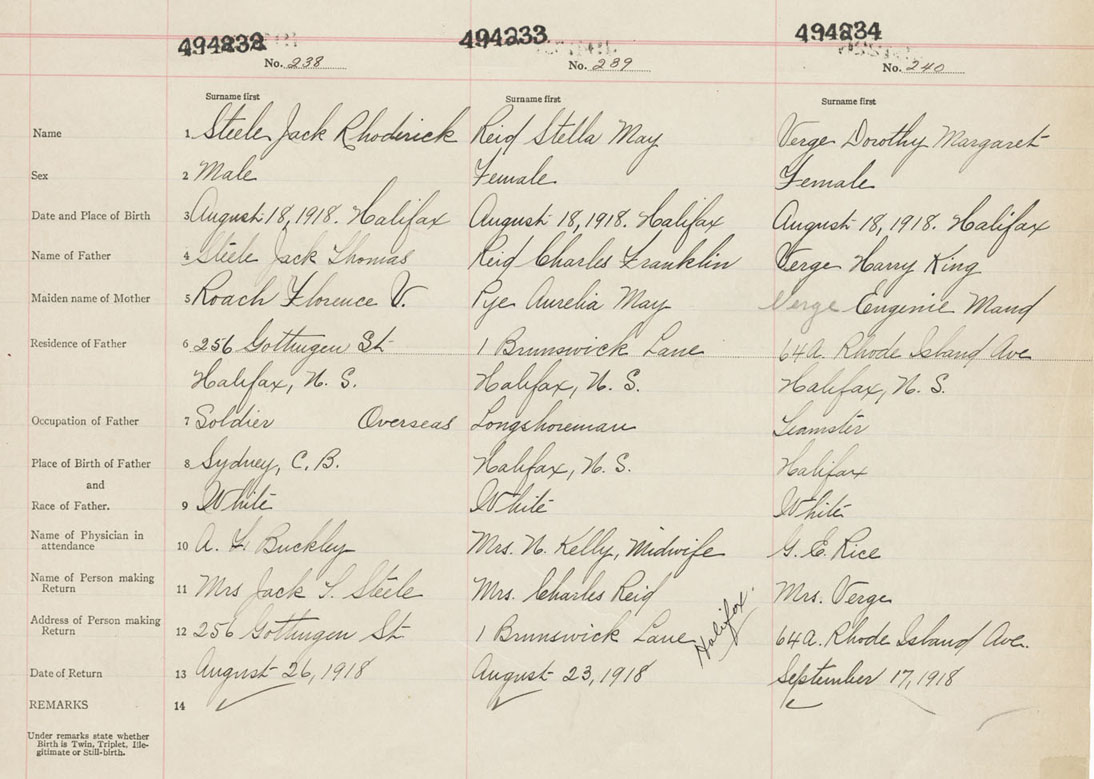 494232 494233 494234
No. 238 No. 239 No. 240
Surname first Surname first Surname first
Name 1 Steele Jack Rhoderick Reid Stella May Verge Dorothy Margaret
Sex 2 Male Female Female
Date and Place of Birth 3 August 18, 1918. Halifax August 18, 1918. Halifax August 18, 1918. Halifax
Name of Father 4 Steele Jack Thomas Reid Charles Franklin Verge Harry King
Maiden name of Mother 5 Roach Florence V. Pye Aurelia May Verge Eugenie Maud
Residence of Father 6 256 Gottingen St 1 Brunswick Lane 64A. Rhode Island Ave
Halifax, N. S. Halifax, N. S. Halifax, N. S.
Occupation of Father 7 Soldier Overseas Longshoreman Teamster
Place of Birth of Father 8 Sydney, C. B. Halifax, N. S. Halifax
and
Race of Father. 9 White White White
Name of Physician in
attendance 10 A. L. Buckley Mrs. N. Kelly, Midwife G. E. Rice
Name of Person making
Return 11 Mrs Jack T. Steele Mrs. Charles Reid Mrs. Verge
Address of Person making
Return 12 256 Gottingen St 1 Brunswick Lane Halifax. 64A. Rhode Island Ave.
Date of Return 13 August 26, 1918 August 23, 1918 September 17, 1918
REMARKS 14
Under remarks state whether
Birth is Twin, Triplet, Ille-
gitimate or Still-birth.